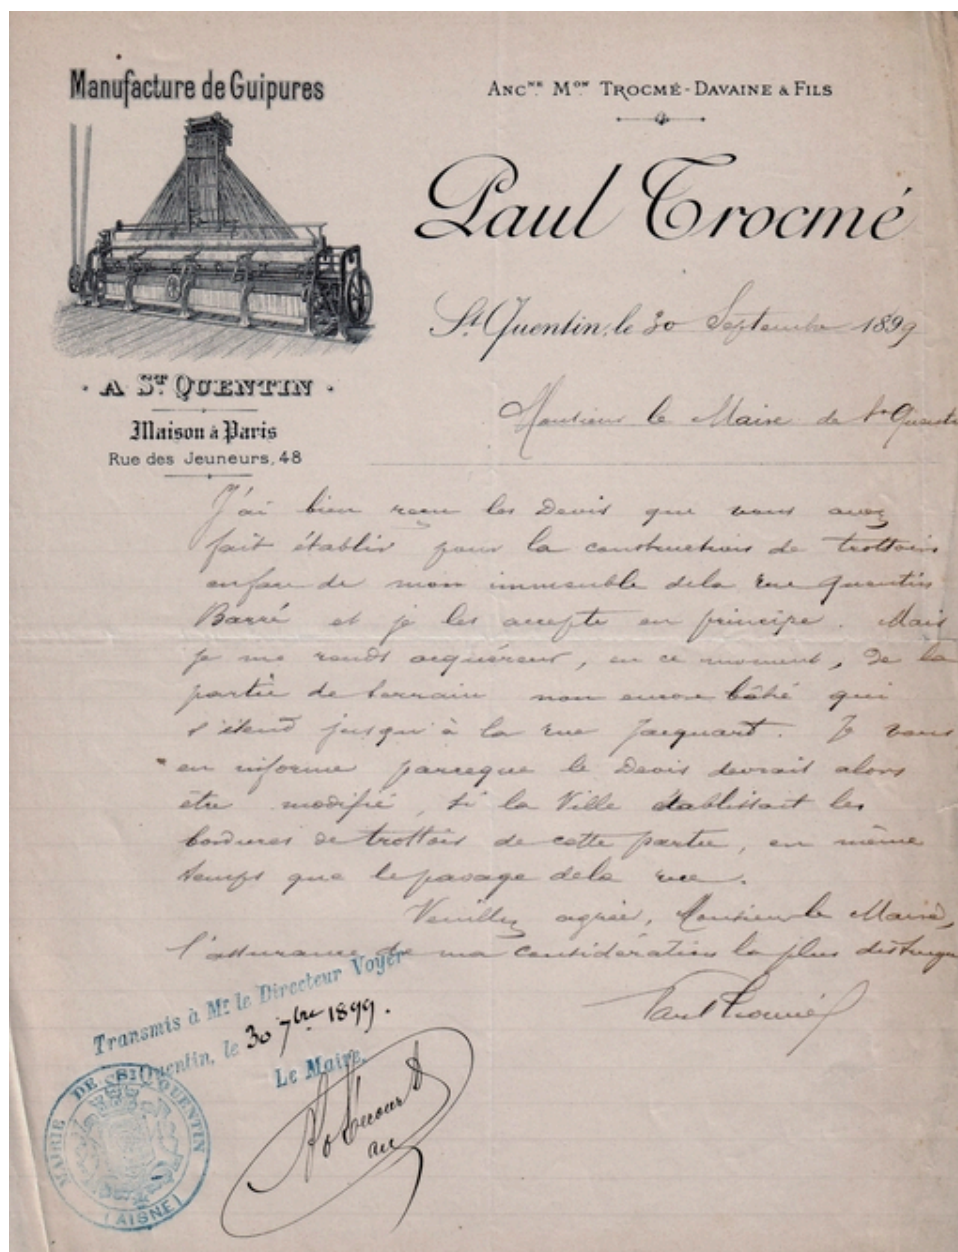 Manufacture de Guipures
ANC.NE M.ON TROCMÉ-DAVAINE & FILS
Paul Trocmé
St Quentin, le 30 Septembre 1899
· A ST QUENTIN ·
Maison à Paris
Rue des Jeuneurs, 48
Monsieur le Maire de St Quentin
J'ai bien reçu les Devis que vous avez
fait établir pour la construction de trottoirs
en face de mon immeuble de la rue Quentin
Barré et je les accepte en principe. Mais
je me rends acquéreur, en ce moment, de la
partie de terrain non encore bâtie qui
s'étend jusqu'à la rue Jacquart. Je vous
en informe parceque le Devis devrait alors
être modifié, si la Ville établissait les
bordures de trottoir de cette partie, en même
temps que le pavage de la rue.
Veuillez agréer, Monsieur le Maire,
l'assurance de ma considération la plus distingu
Paul Trocmé
Transmis à Mr. le Directeur Voyer
St Quentin, le 30 7bre 1899.
Le Maire,
MAIRIE DE ST QUENTIN
(AISNE)